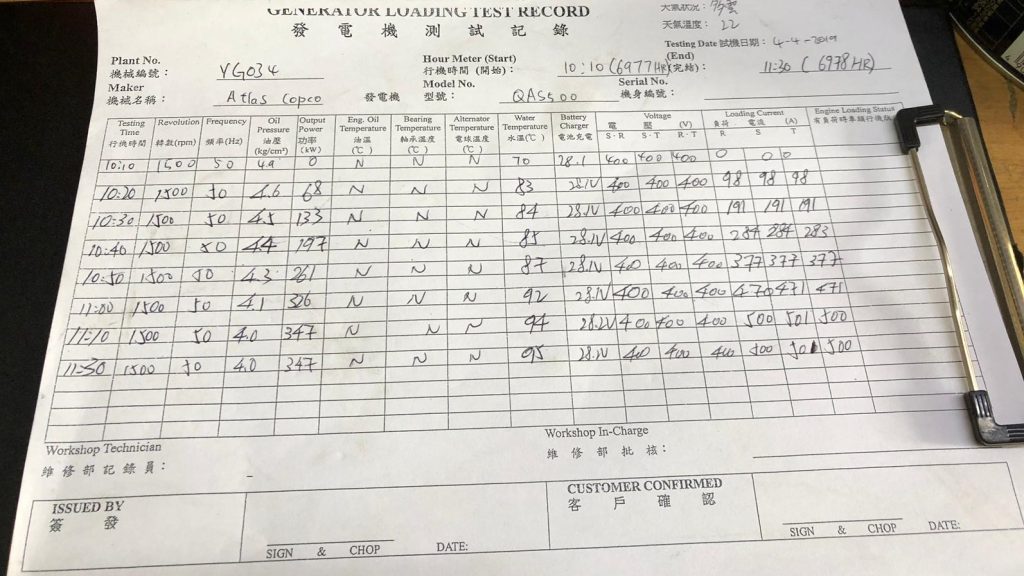 GENERATOR LOADING TEST RECORD
發電機測試記錄
天氣狀況：多雲
天氣溫度：22
Testing Date 試機日期：4-4-2019
Plant No. 機械編號：YG034
Hour Meter (Start) 行機時間 (開始)：10:10 (6977HR)
(End) (完結)：11:30 (6978HR)
Maker 機械名稱：Atlas Copco 發電機
Model No. 型號：QAS500
Serial No. 機身編號：
Testing Time 行機時間 Revolution 轉數(rpm) Frequency 頻率(Hz) Oil Pressure 油壓 (kg/cm²) Output Power 功率 (kW) Eng. Oil Temperature 油溫 (℃) Bearing Temperature 軸承溫度 (℃) Alternator Temperature 電球溫度 (℃) Water Temperature 水溫(℃) Battery Charger 電池充電 Voltage 電壓 (V) S·R S·T R·T Loading Current 負荷電流 (A) R S T Engine Loading Status 有負荷時車頭行機
10:10 1500 50 4.9 0 N N N 70 28.1 400 400 400 0 0 0
10:20 1500 50 4.6 68 N N N 83 28.1V 400 400 400 98 98 98
10:30 1500 50 4.5 133 N N N 84 28.1V 400 400 400 191 191 191
10:40 1500 50 4.4 197 N N N 85 28.1V 400 400 400 284 284 283
10:50 1500 50 4.3 261 N N N 87 28.1V 400 400 400 377 377 377
11:00 1500 50 4.1 326 N N N 92 28.1V 400 400 400 470 471 471
11:10 1500 50 4.0 347 N N N 94 28.2V 400 400 400 500 501 500
11:30 1500 50 4.0 347 N N N 95 28.1V 400 400 400 500 501 500
Workshop Technician
維修部記錄員：
Workshop In-Charge
維修部批核：
ISSUED BY
簽發
SIGN & CHOP DATE:
CUSTOMER CONFIRMED
客戶確認
SIGN & CHOP DATE: